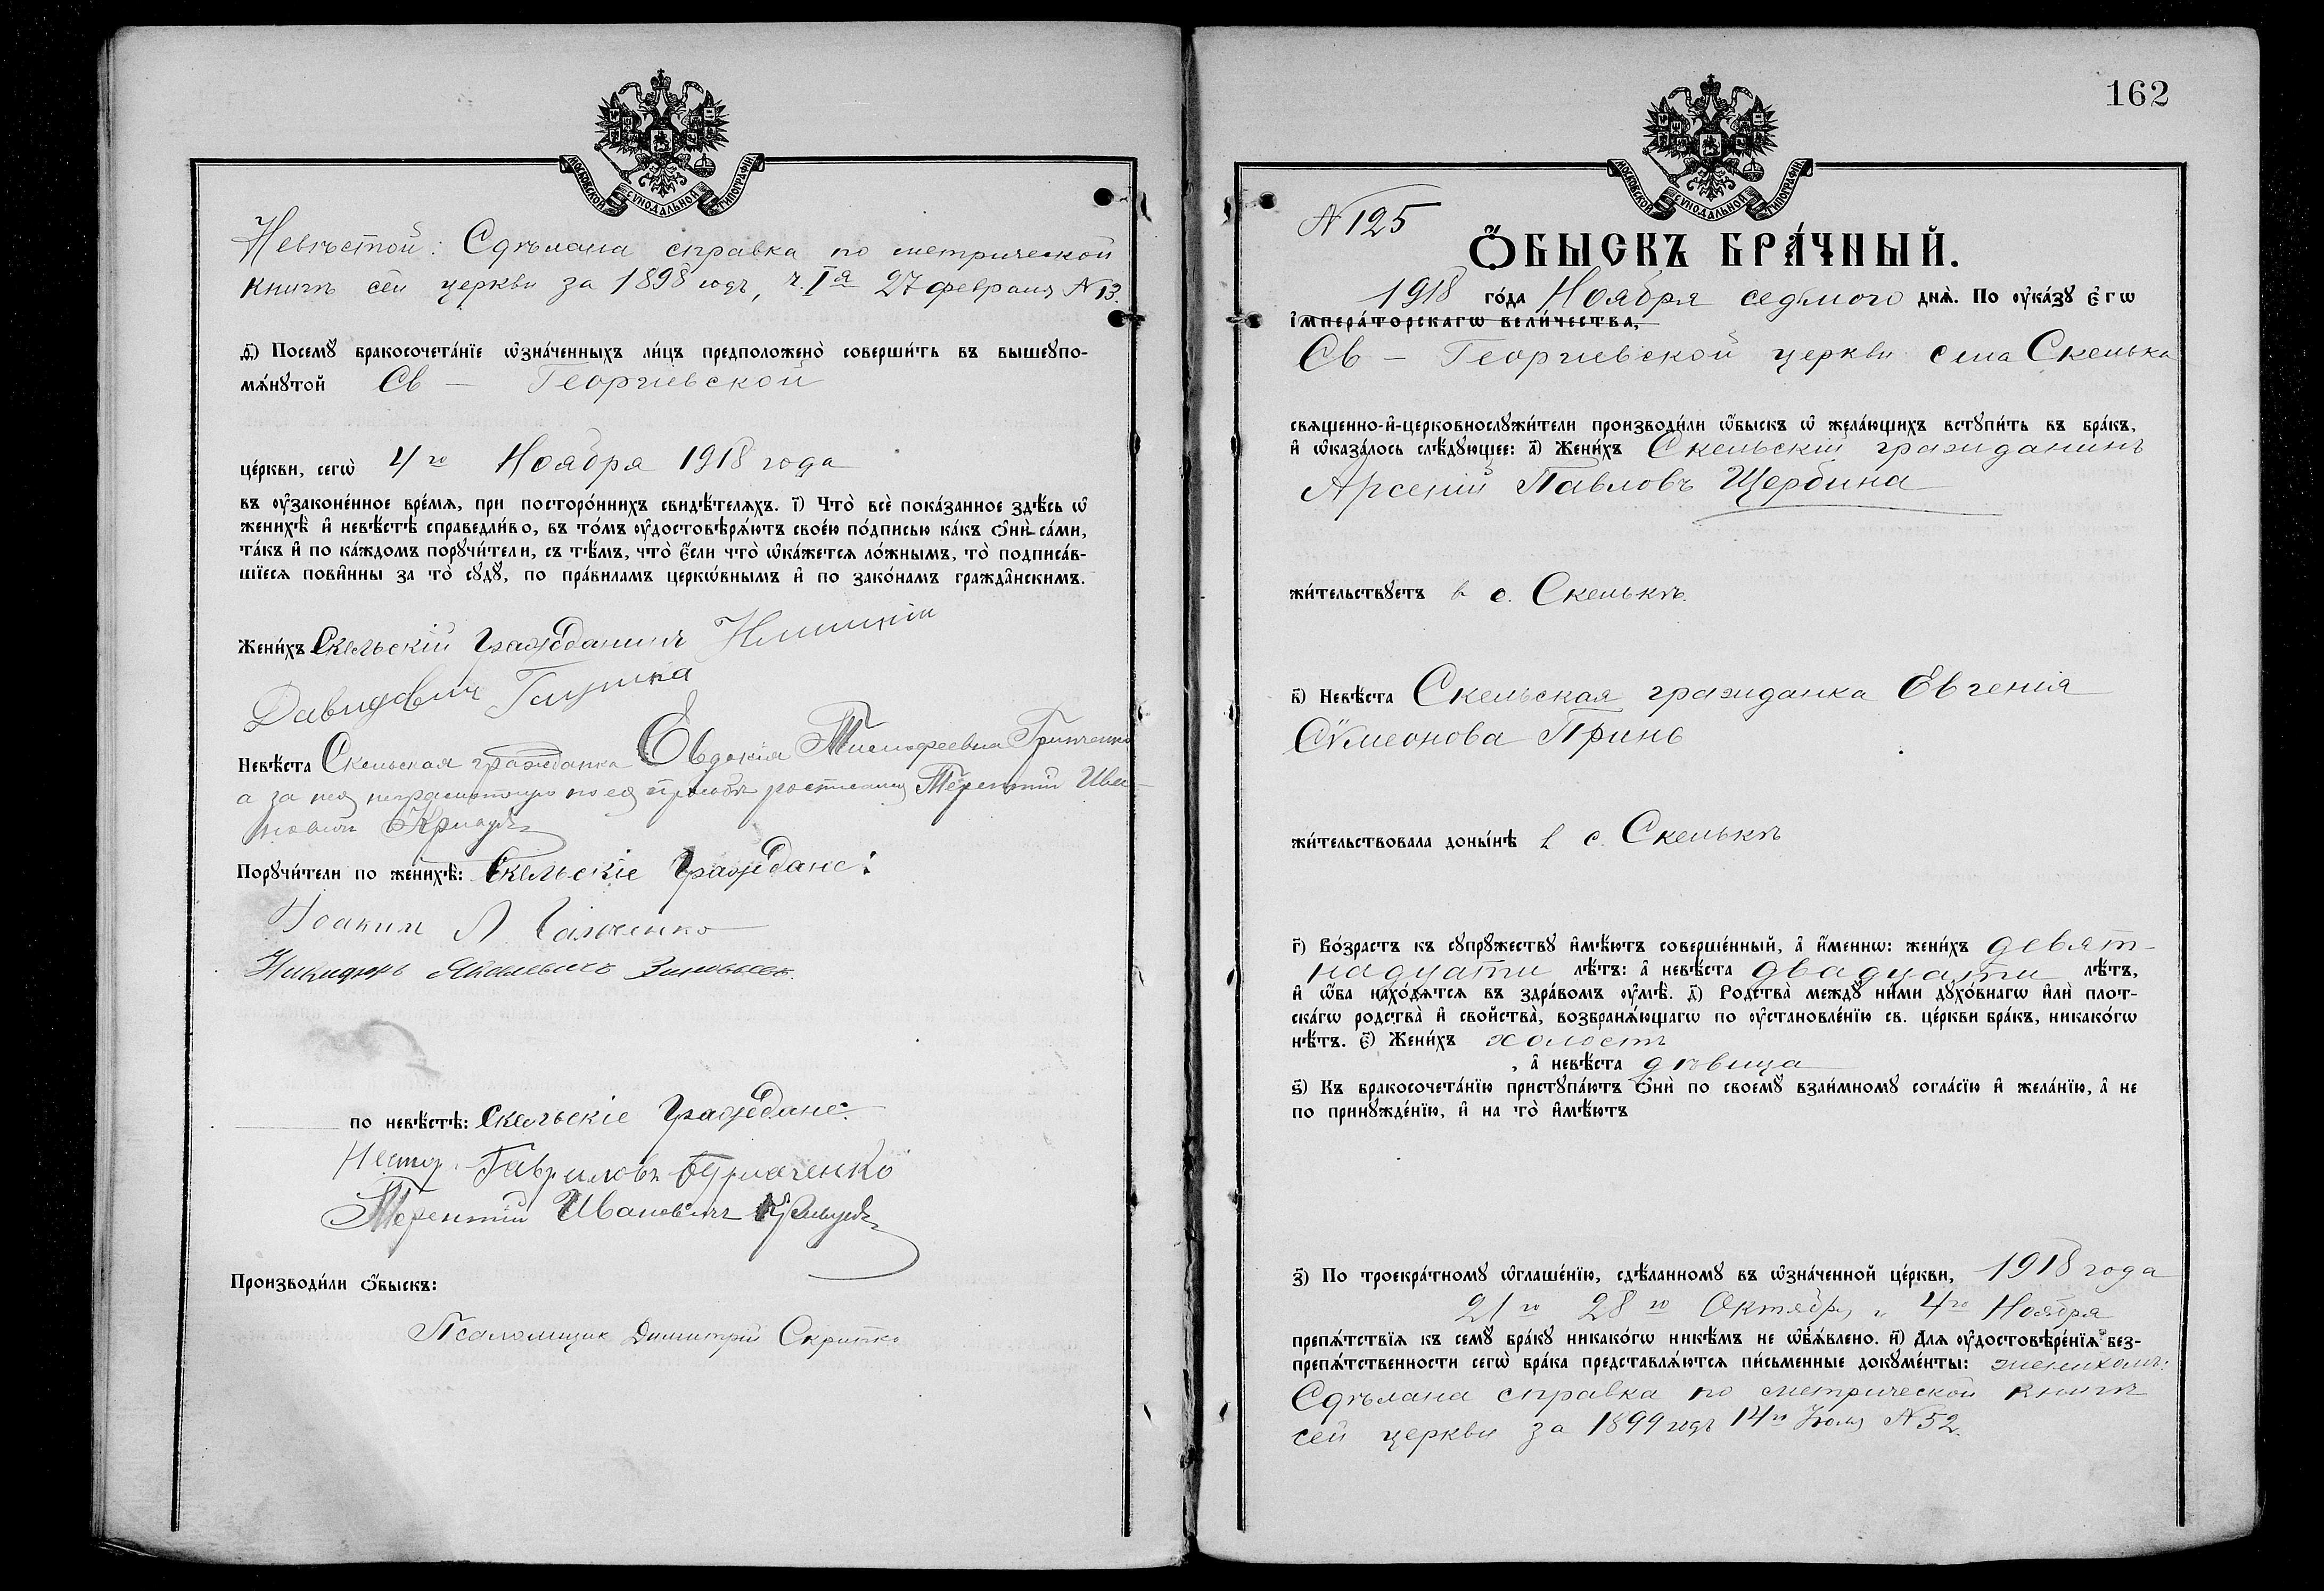 МОСКОВСКОЙ СѴНОДАЛЬНОЙ ТИПОГРАФІИ
Невѣстой: Сдѣлана справка по метрической
книгѣ сей церкви за 1898 годъ, ч. Iя 27 февраля N 13.
д҃) Посемꙋ бракосочета́нїе ѡ҆зна́ченныхъ ли́цъ предположено̀ соверши́ть въ вышеꙋпо-
мѧ́нꙋтой Св – Георгіевской
це́ркви, сегѡ̀ 4го Ноября 1918 года
въ ᲂу҆законе́нное вре́мѧ, при посторо́ннихъ свидѣ́телѧхъ. і҃) Что̀ всѐ пока́занное здѣ́сь ѡ҆
женихѣ̀ и҆ невѣ́стѣ справедли́во, въ то́мъ ᲂу҆достовѣрѧ́ютъ свое́ю по́дписью ка́къ ѻ҆нѝ са́ми,
та́къ и҆ по ка́ждомъ порꙋчи́тели, съ тѣ́мъ, что̀ є҆́сли что̀ ѡ҆ка́жетсѧ ло́жнымъ, то̀ подписа́в-
шїесѧ пови́нны за то̀ сꙋдꙋ̀, по пра́виламъ церкѡ́внымъ и҆ по зако́намъ гражда́нскимъ.
Жени́хъ Скельскій Гражданинъ
Давидовичъ Глушка
Невѣ́ста Скельская гражданка Евдокія Тимофеевна Гринченко
а за нея неграмотную по ея просьбѣ росписался Терентій Ива-
новичъ
Порꙋчи́тели по женихѣ̀: Скельскіе Граждане:
Іоаким Л. Галюченко
Никифоръ
по невѣ́стѣ: Скельскіе Граждане:
Нестор Гавриловъ Бурлаченко
Терентій Ивановичъ
Производи́ли ѻ҆́быскъ:
Псаломщик Димитрій Скрипко
162
МОСКОВСКОЙ СѴНОДАЛЬНОЙ ТИПОГРАФІИ
N 125
Ѻ҆́БЫСКЪ БРА́ЧНЫЙ.
1918 го́да Ноября седьмого днѧ̀. По ᲂу҆ка́зꙋ є҆гѡ̀
і҆мпера́торскагѡ вели́чества,
Св – Георгіевской церкви села Скелька
свѧщенно-и҆-церковнослꙋжи́тели производи́ли ѡ҆́быскъ ѡ҆ жела́ющихъ встꙋпи́ть въ бра́къ,
и҆ ѡ҆каза́лось слѣ́дꙋющее: а҃) Жени́хъ Скельскій гражданинъ
Арсеній Павловъ Щербина
жи́тельствꙋетъ в с. Скелькѣ.
в҃) Невѣ́ста Скельская гражданка Евгенія
Сѵмеонова Принь
жи́тельствовала доны́нѣ в с. Скелькѣ
г҃) Во́зрастъ къ сꙋпрꙋ́жествꙋ и҆мѣ́ютъ соверше́нный, а҆ и҆́меннѡ: жени́хъ девят-
надцати лѣ́тъ: а҆ невѣ́ста двадцати лѣ́тъ,
и҆ ѻ҆́ба нахо́дѧтсѧ въ здра́вомъ ᲂу҆мѣ̀. д҃) Родства̀ междꙋ̀ ни́ми дꙋхо́внагѡ и҆лѝ плот-
ска́гѡ родства̀ и҆ свойства̀, возбранѧ́ющагѡ по ᲂу҆становле́нїю св. це́ркви бра́къ, никако́гѡ
нѣ́тъ. є҃) Жени́хъ холостъ
, а҆ невѣ́ста дѣвица
ѕ҃) Къ бракосочета́нїю пристꙋпа́ютъ ѻ҆нѝ по своемꙋ̀ взаи́мномꙋ согла́сїю и҆ жела́нїю, а҆ не
по принꙋжде́нїю, и҆ на то̀ и҆мѣ́ютъ
з҃) По троекра́тномꙋ ѡ҆глаше́нїю, сдѣ́ланномꙋ въ ѡ҆зна́ченной це́ркви, 1918 года
21го 28го Октября и 4го Ноября
препѧ́тствїѧ къ семꙋ̀ бра́кꙋ никако́гѡ никѣ́мъ не ѡ҆б̾ѧ́влено. и҃) Длѧ ᲂу҆достовѣре́нїѧ без-
препѧ́тственности сегѡ̀ бра́ка представлѧ́ютсѧ пи́сьменные докꙋме́нты: женихомъ:
Сдѣлана справка по метрической книгѣ
сей церкви за 1899 годъ 14го Іюля N 52.